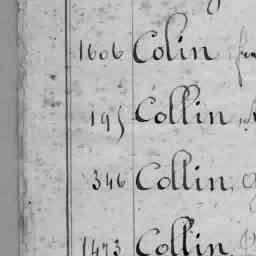 1606 Colin,
195 Collin,
346 Collin,
1473 Collin